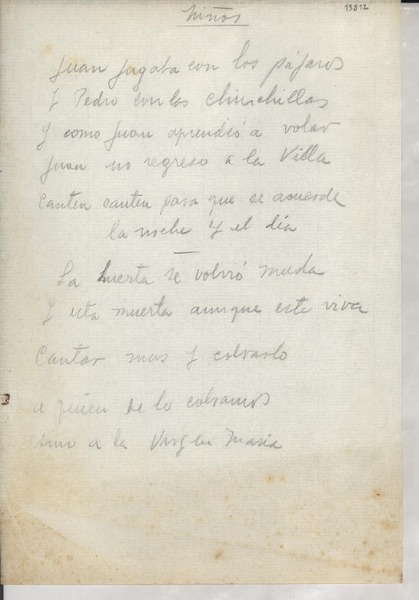 Niños
13812
Juan jugaba con los pájaros
Y Pedro con las chinchillas
Y como Juan aprendió a volar
Juan no regreso a la Villa
Canten canten para que se acuerde
la noche y el día
La huerta se volvió muda
Y esta muerta aunque este viva
Cantar mas y cobrarlo
a quien de lo cobramos
sino a la Virgen Maria